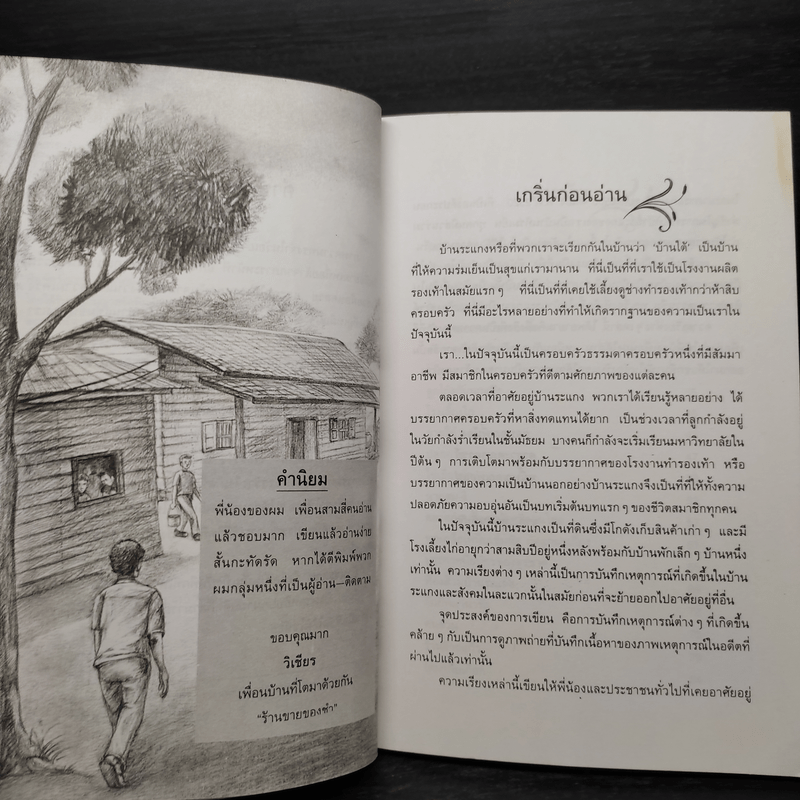 คำนิยม
พี่น้องของผม เพื่อนสามสี่คนอ่าน
แล้วชอบมาก เขียนแล้วอ่านง่าย
สั้นกะทัดรัด หากได้ตีพิมพ์พวก
ผมกลุ่มหนึ่งที่เป็นผู้อ่าน–ติดตาม
ขอบคุณมาก
วิเชียร
เพื่อนบ้านที่โตมาด้วยกัน
"ร้านขายของชำ"
เกริ่นก่อนอ่าน
บ้านระแกงหรือที่พวกเราจะเรียกกันในบ้านว่า 'บ้านใต้' เป็นบ้าน
ที่ให้ความร่มเย็นเป็นสุขแก่เรามานาน ที่นี่เป็นที่ที่เราใช้เป็นโรงงานผลิต
รองเท้าในสมัยแรก ๆ ที่นี่เป็นที่ที่เคยใช้เลี้ยงดูช่างทำรองเท้ากว่าห้าสิบ
ครอบครัว ที่นี่มีอะไรหลายอย่างที่ทำให้เกิดรากฐานของความเป็นเราใน
ปัจจุบันนี้
เรา...ในปัจจุบันนี้เป็นครอบครัวธรรมดาครอบครัวหนึ่งที่มีสัมมา
อาชีพ มีสมาชิกในครอบครัวที่ดีตามศักยภาพของแต่ละคน
ตลอดเวลาที่อาศัยอยู่บ้านระแกง พวกเราได้เรียนรู้หลายอย่าง ได้
บรรยากาศครอบครัวที่หาสิ่งทดแทนได้ยาก เป็นช่วงเวลาที่ลูกกำลังอยู่
ในวัยกำลังร่ำเรียนในชั้นมัธยม บางคนก็กำลังจะเริ่มเรียนมหาวิทยาลัยใน
ปีต้น ๆ การเติบโตมาพร้อมกับบรรยากาศของโรงงานทำรองเท้า หรือ
บรรยากาศของความเป็นบ้านนอกอย่างบ้านระแกงจึงเป็นที่ที่ให้ทั้งความ
ปลอดภัยความอบอุ่นอันเป็นบทเริ่มต้นบทแรก ๆ ของชีวิตสมาชิกทุกคน
ในปัจจุบันนี้บ้านระแกงเป็นที่ดินซึ่งมีโกดังเก็บสินค้าเก่า ๆ และมี
โรงเลี้ยงไก่อายุกว่าสามสิบปีอยู่หนึ่งหลังพร้อมกับบ้านพักเล็ก ๆ บ้านหนึ่ง
เท่านั้น ความเรียงต่าง ๆ เหล่านี้เป็นการบันทึกเหตุการณ์ที่เกิดขึ้นในบ้าน
ระแกงและสังคมในละแวกนั้นในสมัยก่อนที่จะย้ายออกไปอาศัยอยู่ที่อื่น
จุดประสงค์ของการเขียน คือการบันทึกเหตุการณ์ต่าง ๆ ที่เกิดขึ้น
คล้าย ๆ กับเป็นการดูภาพถ่ายที่บันทึกเนื้อหาของภาพเหตุการณ์ในอดีตที่
ผ่านไปแล้วเท่านั้น
ความเรียงเหล่านี้เขียนให้พี่น้องและประชาชนทั่วไปที่เคยอาศัยอยู่